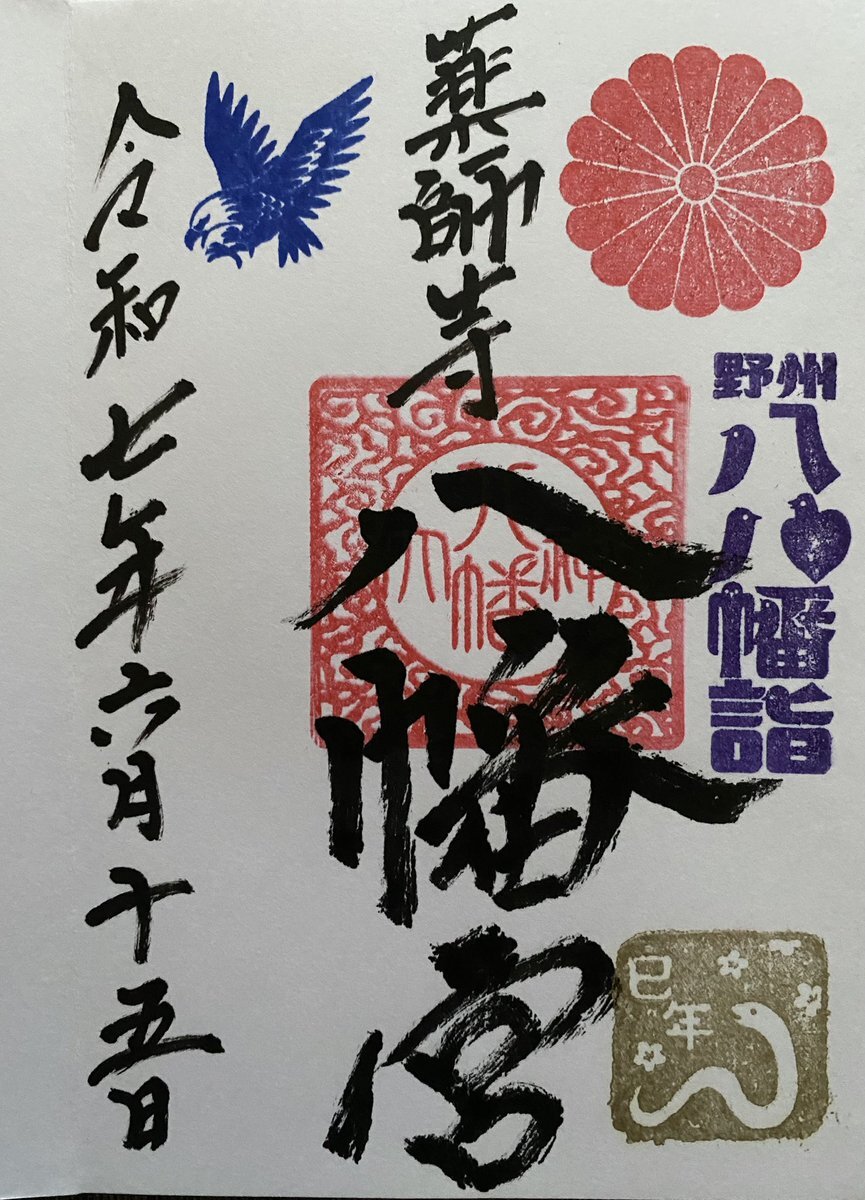 野州
八八幡詣
薬師寺
八幡宮
令和七年六月十五日
巳年